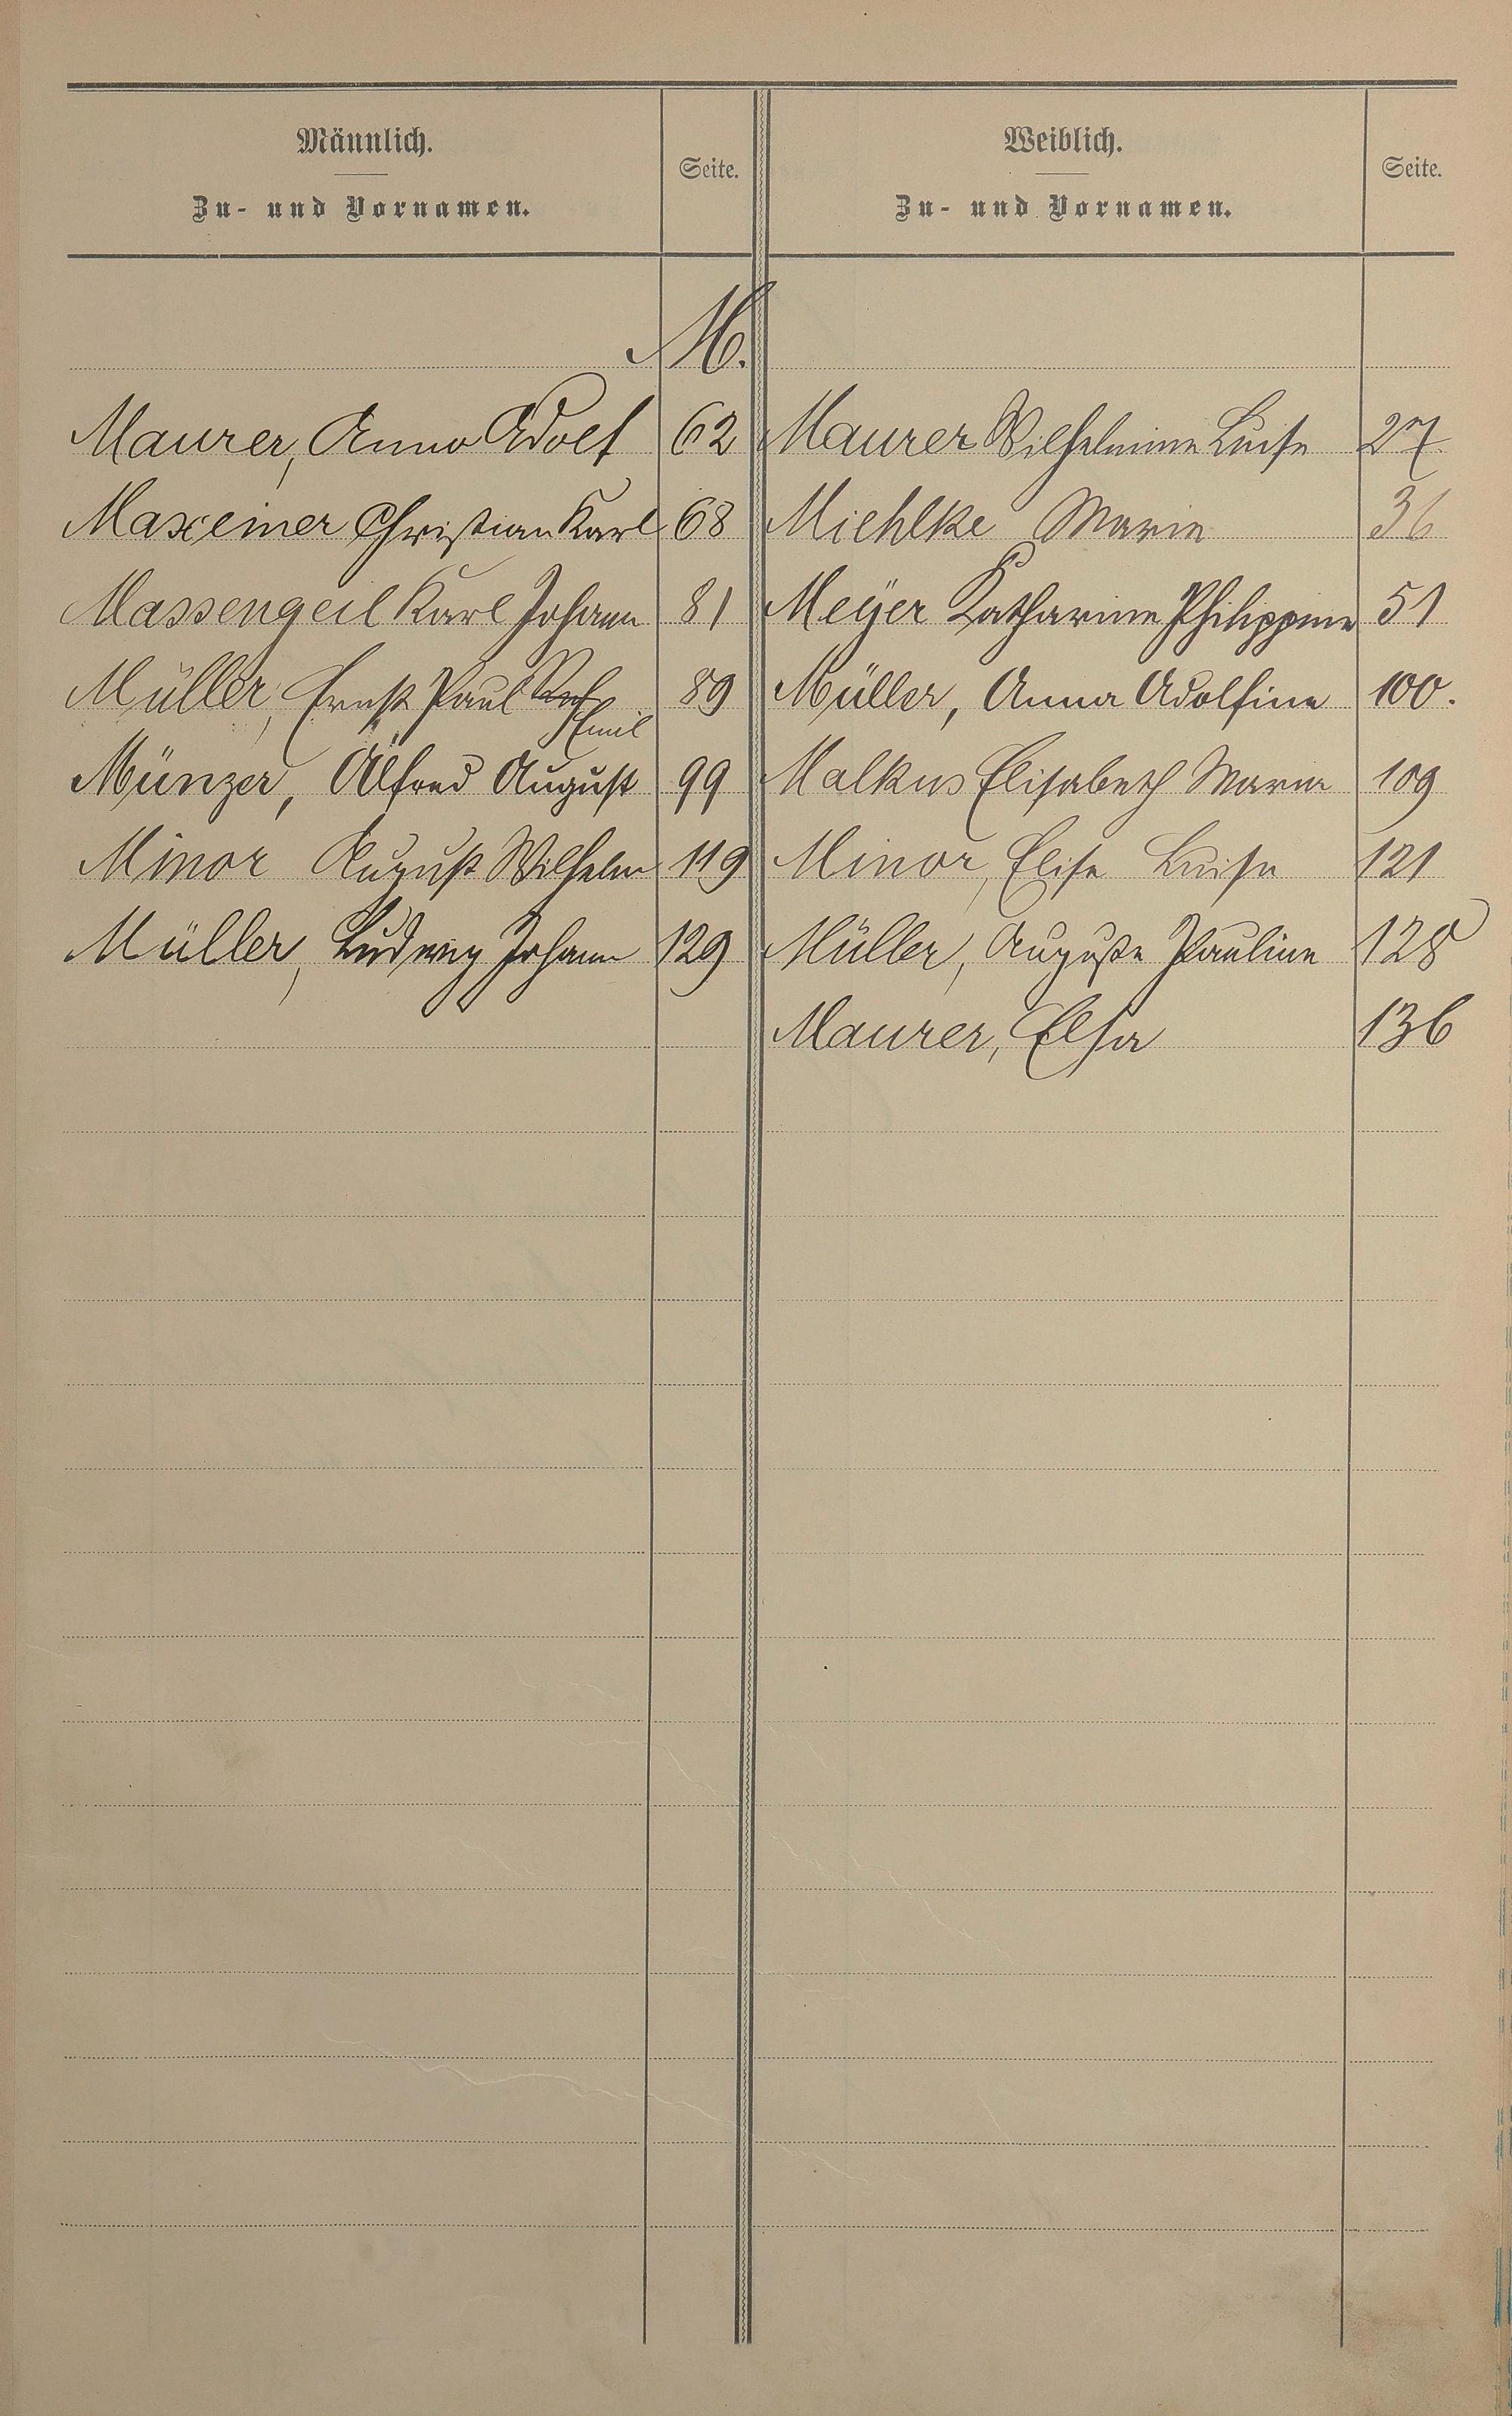 Männlich.
Zu- und Vornamen.
Seite.
Weiblich.
Zu- und Vornamen.
Seite.
M.
Maurer, Anno Adolf 62
Maxeiner Christian Karl 68
Massengeil Karl Johann 81
Müller, Ernst Paul 89
Emil
Münzer, Alfred August 99
Minor August Wilhelm 119
Müller, Ludwig Johann 129
Maurer Wilhelmine Luise 27.
Miehlke Marie 36
Meÿer Katharine Philippine 51
Müller, Anna Adolfine 100.
Malkus Elisabeth Maria 109
Minor, Elise Luise 121
Müller, Auguste Pauline 128
Maurer, Elsa 136